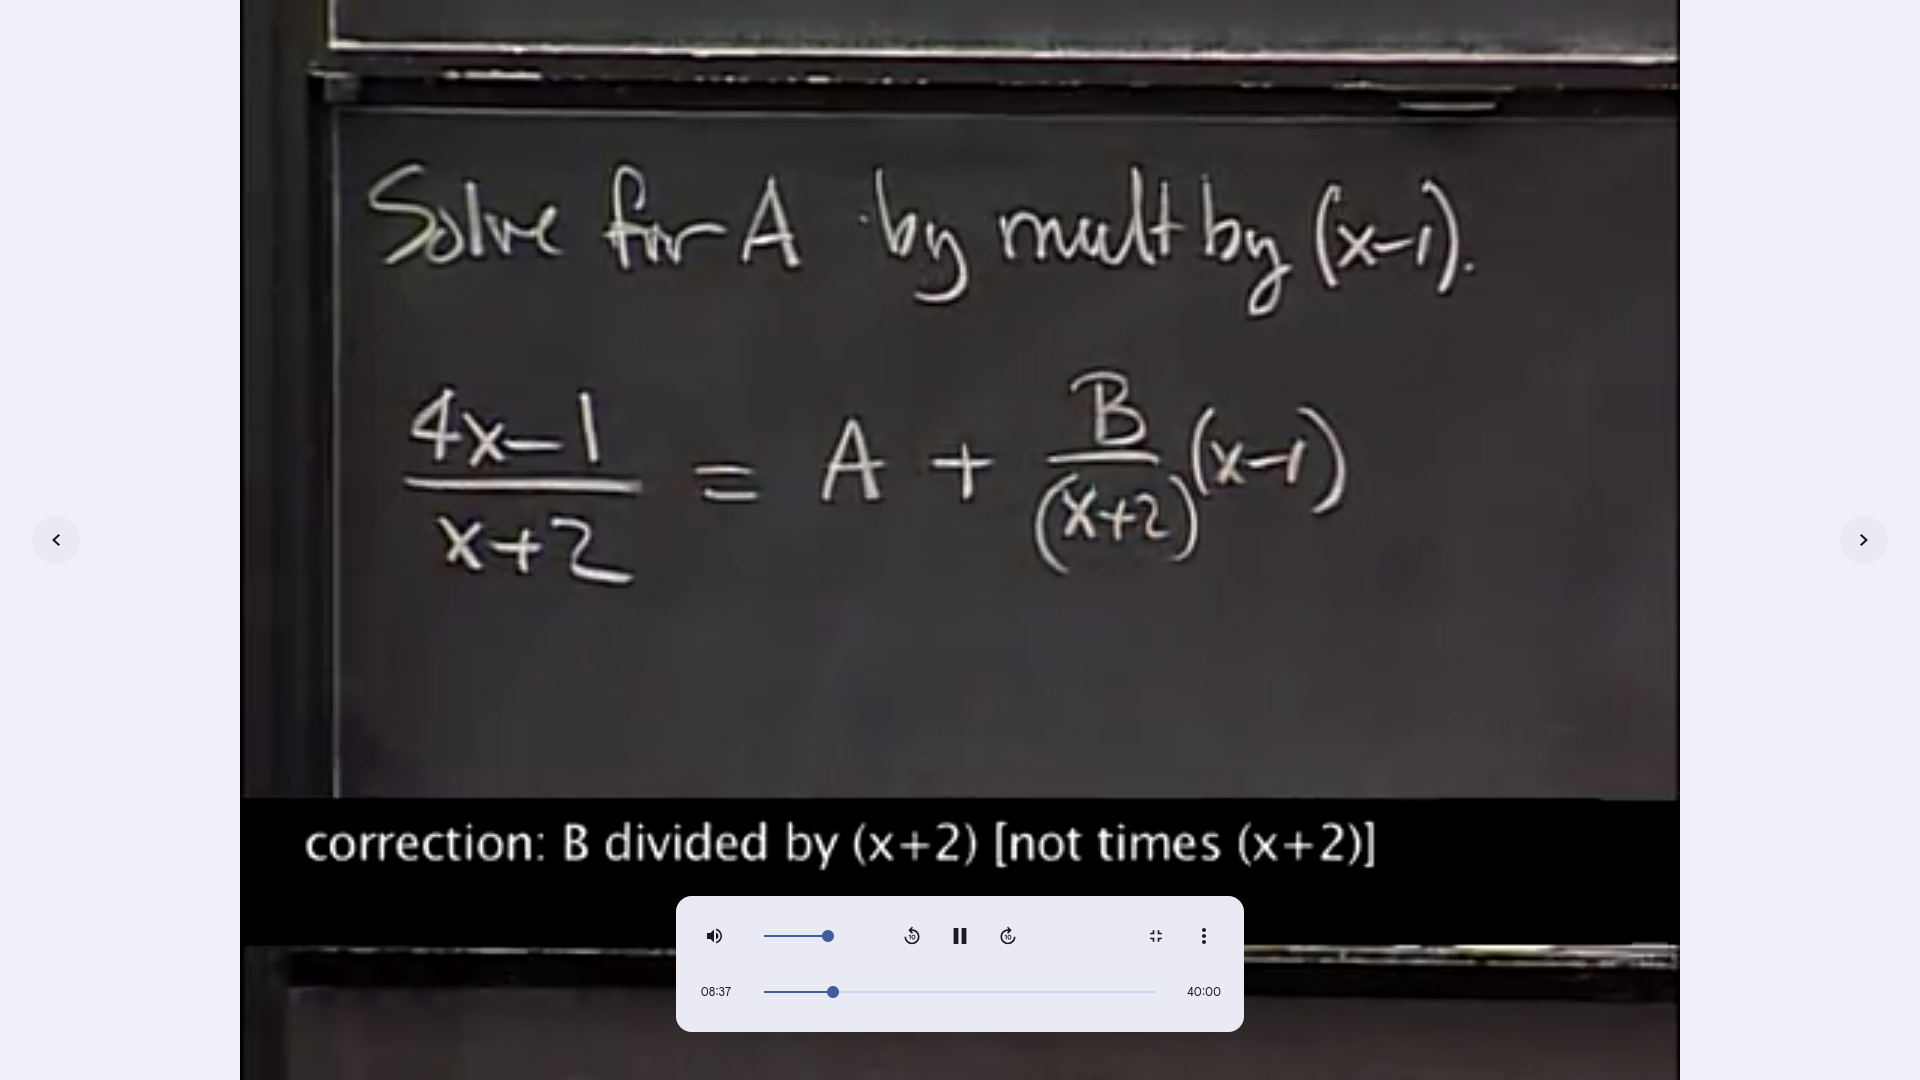 Solve for A by mult by (x-1).
4x-1 / x+2 = A + B / (x+2) (x-1)
correction: B divided by (x+2) [not times (x+2)]
10 10
08:37 40:00